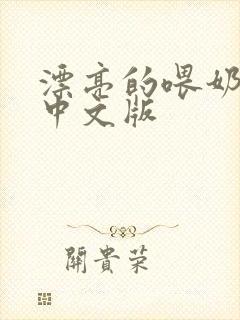 漂亮的喂奶
中文版
開貴荣